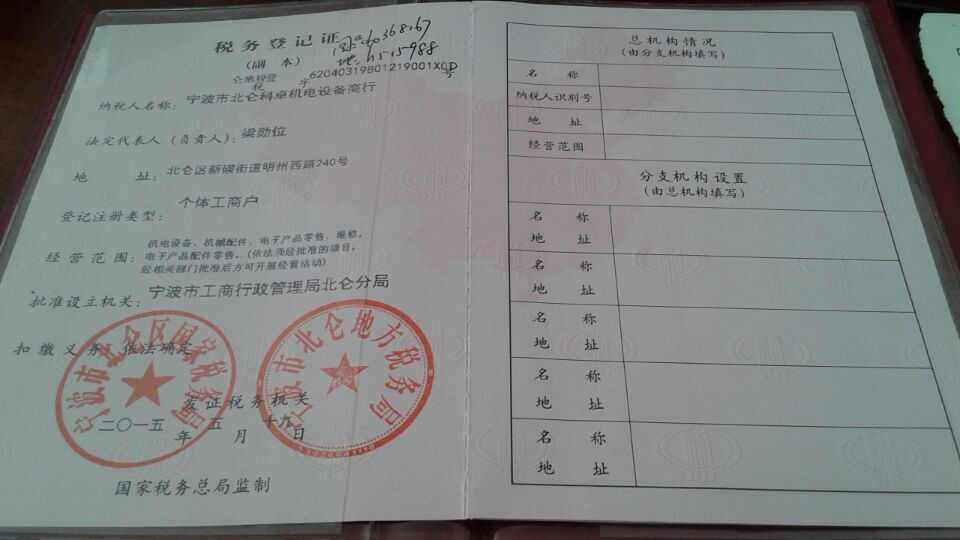 税务登记证
(副 本)
仑地税登
税 字 62040319801219001X00 号
纳税人名称：宁波市北仑科卓机电设备商行
法定代表人（负责人）：梁勋位
地 址：北仑区新碶街道明州西路240号
登记注册类型：个体工商户
经营范围：机电设备、机械配件、电子产品零售、维修，
电子产品配件零售。(依法须经批准的项目，
经相关部门批准后方可开展经营活动)
批准设立机关：宁波市工商行政管理局北仑分局
扣缴义务：依法确定
宁波市北仑区国家税务局
宁波市北仑地方税务局
发证税务机关
二〇一五 年 五 月 十九 日
国家税务总局监制
总机构情况
(由分支机构填写)
名 称
纳税人识别号
地 址
经营范围
分支机构设置
(由总机构填写)
名 称
地 址
名 称
地 址
名 称
地 址
名 称
地 址
名 称
地 址